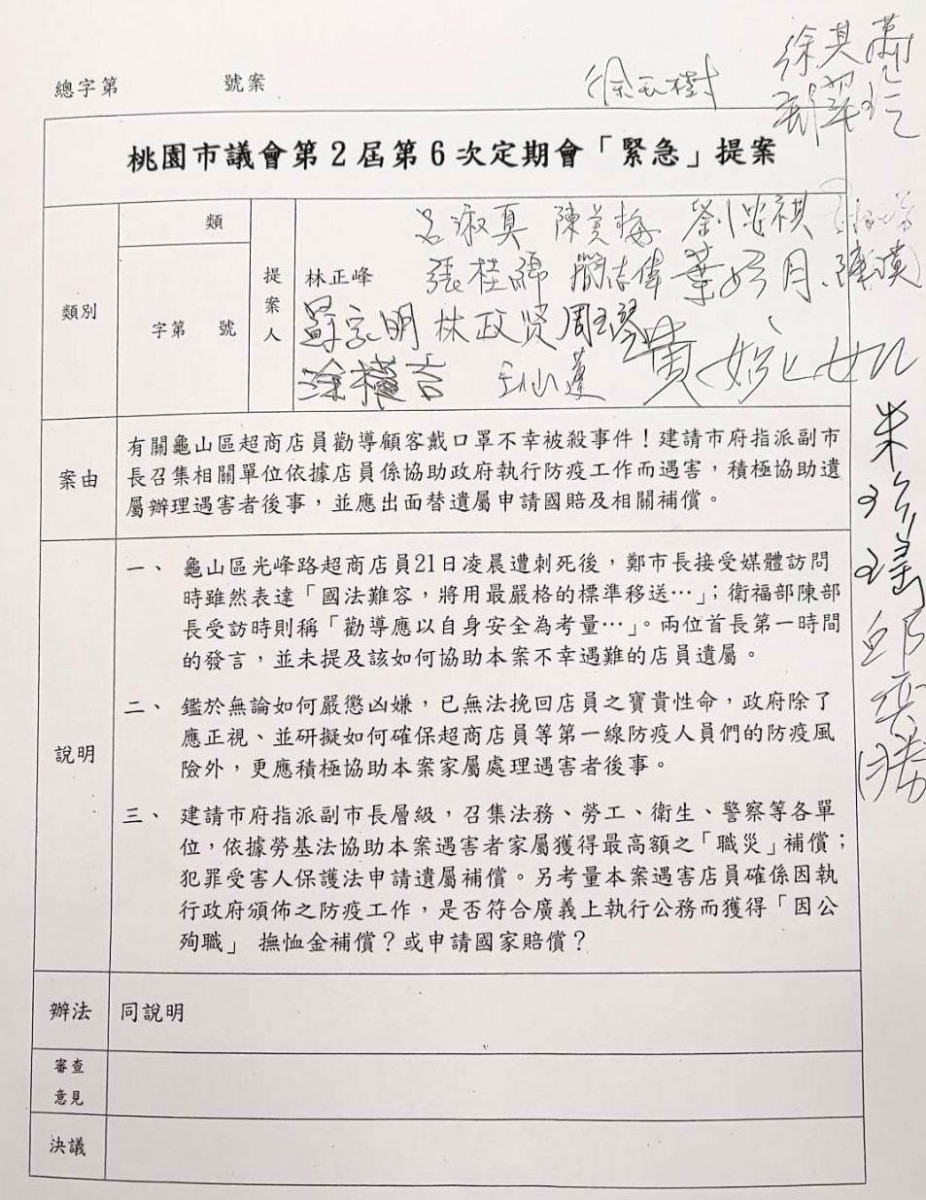 徐其萬
徐玉樹
總字第 號案
桃園市議會第2屆第6次定期會「緊急」提案
類別
類
字第 號
提案人
呂淑真 陳美梅 劉忠祺
林正峰 張桂綿 閻志偉 葉明月 陳瑛
蘇家明 林政賢 周玉琴 黃婉如
涂權吉 王仙蓮
朱珍瑤
邱奕勝
案由
有關龜山區超商店員勸導顧客戴口罩不幸被殺事件！建請市府指派副市
長召集相關單位依據店員係協助政府執行防疫工作而遇害，積極協助遺
屬辦理遇害者後事，並應出面替遺屬申請國賠及相關補償。
說明
一、 龜山區光峰路超商店員21日凌晨遭刺死後，鄭市長接受媒體訪問
時雖然表達「國法難容，將用最嚴格的標準移送…」；衛福部陳部
長受訪時則稱「勸導應以自身安全為考量…」。兩位首長第一時間
的發言，並未提及該如何協助本案不幸遇難的店員遺屬。
二、 鑑於無論如何嚴懲凶嫌，已無法挽回店員之寶貴性命，政府除了
應正視、並研擬如何確保超商店員等第一線防疫人員們的防疫風
險外，更應積極協助本案家屬處理遇害者後事。
三、 建請市府指派副市長層級，召集法務、勞工、衛生、警察等各單
位，依據勞基法協助本案遇害者家屬獲得最高額之「職災」補償；
犯罪受害人保護法申請遺屬補償。另考量本案遇害店員確係因執
行政府頒佈之防疫工作，是否符合廣義上執行公務而獲得「因公
殉職」 撫恤金補償？或申請國家賠償？
辦法
同說明
審查
意見
決議